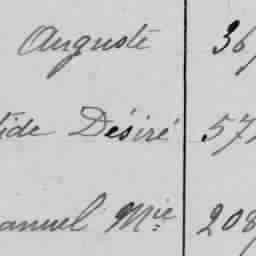 Auguste 36
tide Désiré 57
anuel Mie 208